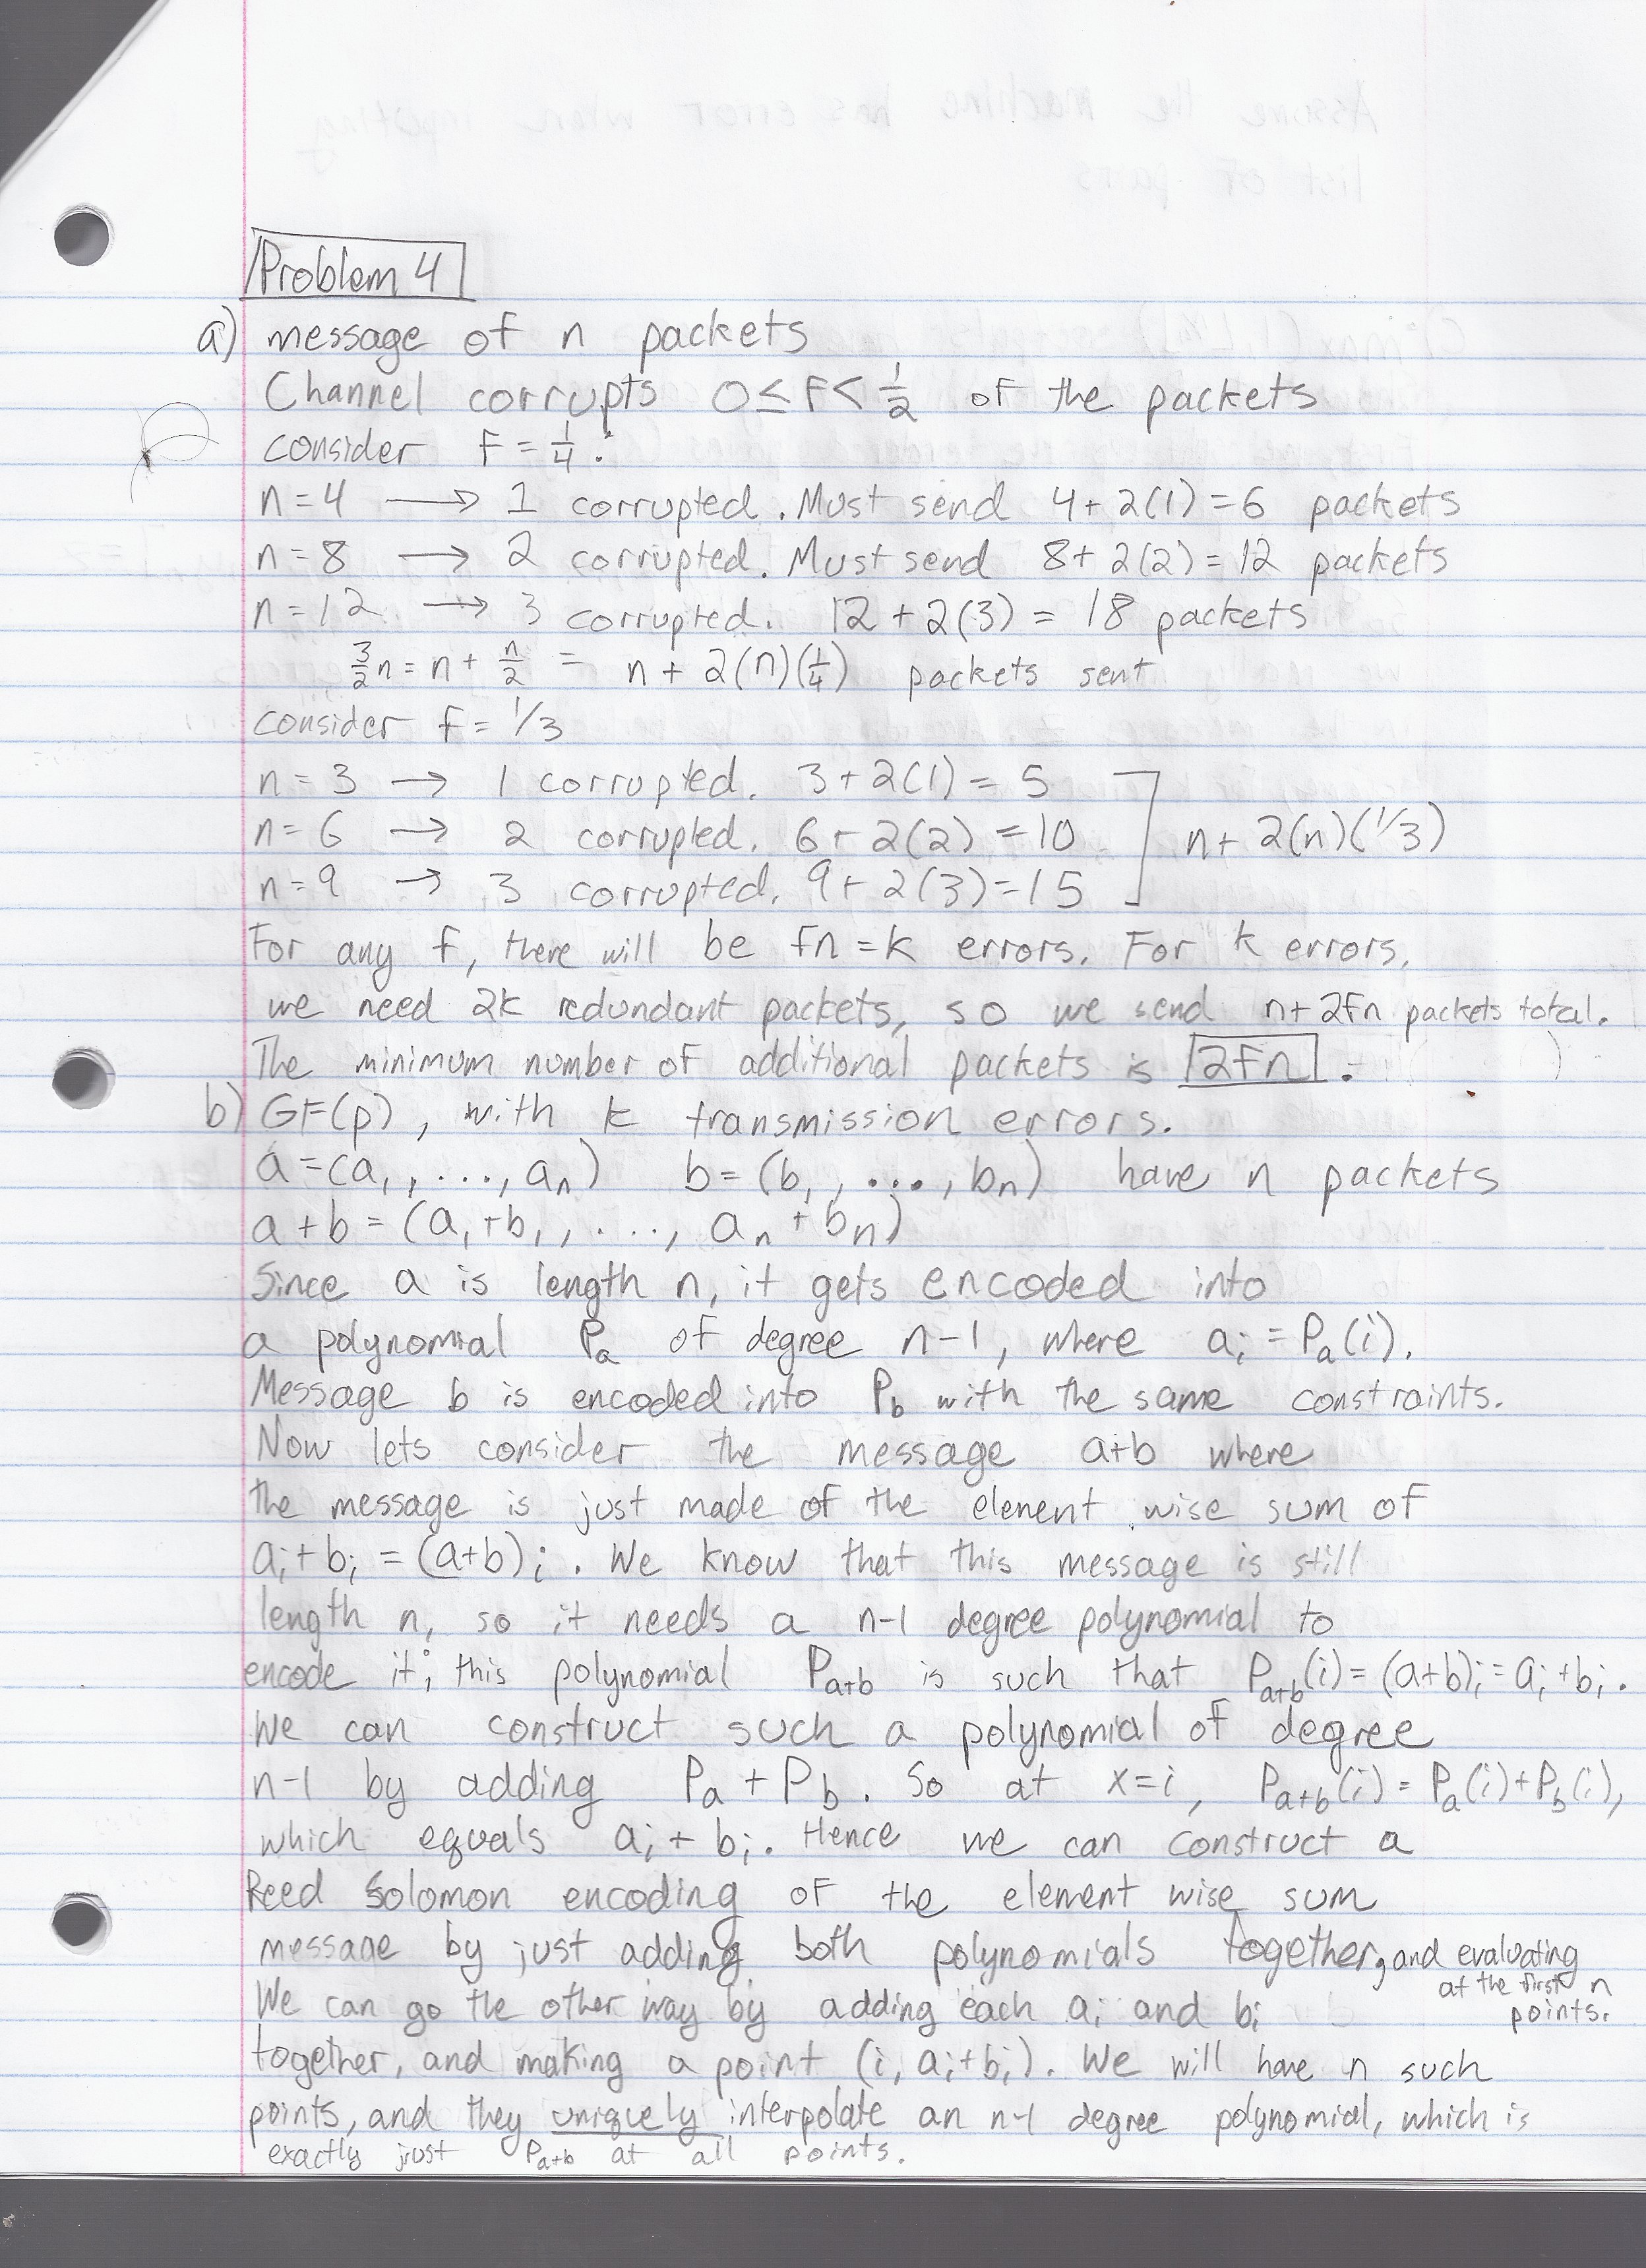 Problem 4
a) message of n packets
Channel corrupts 0 ≤ f < 1/2 of the packets
consider f = 1/4 :
n = 4 → 1 corrupted. Must send 4 + 2(1) = 6 packets
n = 8 → 2 corrupted. Must send 8 + 2(2) = 12 packets
n = 12 → 3 corrupted. 12 + 2(3) = 18 packets
3/2 n = n + n/2 = n + 2(n)(1/4) packets sent
consider f = 1/3
n = 3 → 1 corrupted. 3 + 2(1) = 5
n = 6 → 2 corrupted. 6 + 2(2) = 10 ] n + 2(n)(1/3)
n = 9 → 3 corrupted. 9 + 2(3) = 15
For any f, there will be fn = k errors. For k errors,
we need 2k redundant packets, so we send n + 2fn packets total.
The minimum number of additional packets is 2fn .
b) GF(p), with k transmission errors.
a = (a₁, ..., aₙ) b = (b₁, ..., bₙ) have n packets
a + b = (a₁ + b₁, ..., aₙ + bₙ)
Since a is length n, it gets encoded into
a polynomial Pₐ of degree n-1, where aᵢ = Pₐ(i).
Message b is encoded into P_b with the same constraints.
Now lets consider the message a+b where
the message is just made of the element wise sum of
aᵢ + bᵢ = (a+b)ᵢ. We know that this message is still
length n, so it needs a n-1 degree polynomial to
encode it; this polynomial P_{a+b} is such that P_{a+b}(i) = (a+b)ᵢ = aᵢ + bᵢ.
We can construct such a polynomial of degree
n-1 by adding Pₐ + P_b. So at x=i, P_{a+b}(i) = Pₐ(i) + P_b(i),
which equals aᵢ + bᵢ. Hence we can construct a
Reed Solomon encoding of the element wise sum
message by just adding both polynomials together, and evaluating
at the first n
points.
We can go the other way by adding each aᵢ and bᵢ
together, and making a point (i, aᵢ+bᵢ). We will have n such
points, and they uniquely interpolate an n-1 degree polynomial, which is
exactly just P_{a+b} at all points.